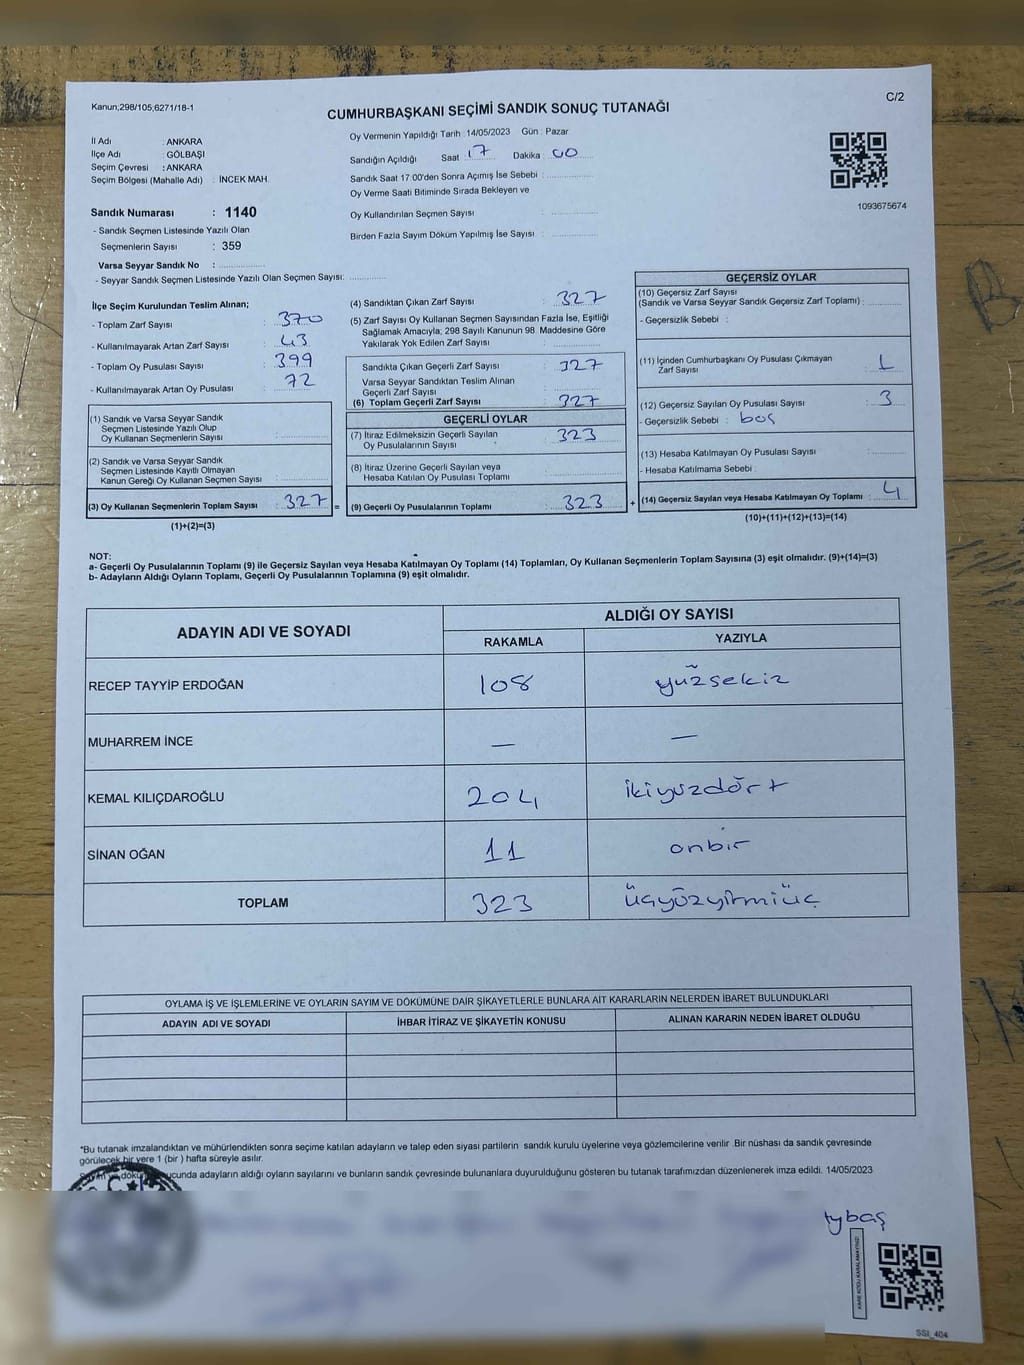 Kanun;298/105,6271/18-1
C/2
CUMHURBAŞKANI SEÇİMİ SANDIK SONUÇ TUTANAĞI
İl Adı : ANKARA
İlçe Adı : GÖLBAŞI
Seçim Çevresi : ANKARA
Seçim Bölgesi (Mahalle Adı) : İNCEK MAH.
Sandık Numarası : 1140
- Sandık Seçmen Listesinde Yazılı Olan
Seçmenlerin Sayısı : 359
Varsa Seyyar Sandık No :
- Seyyar Sandık Seçmen Listesinde Yazılı Olan Seçmen Sayısı:
Oy Vermenin Yapıldığı Tarih : 14/05/2023 Gün : Pazar
Sandığın Açıldığı Saat : 17 Dakika : 00
Sandık Saat 17:00'den Sonra Açımış İse Sebebi :
Oy Verme Saati Bitiminde Sırada Bekleyen ve
Oy Kullandırılan Seçmen Sayısı :
Birden Fazla Sayım Döküm Yapılmış İse Sayısı :
1093675674
İlçe Seçim Kurulundan Teslim Alınan;
- Toplam Zarf Sayısı : 370
- Kullanılmayarak Artan Zarf Sayısı : 43
- Toplam Oy Pusulası Sayısı : 399
- Kullanılmayarak Artan Oy Pusulası : 72
(1) Sandık ve Varsa Seyyar Sandık
Seçmen Listesinde Yazılı Olup
Oy Kullanan Seçmenlerin Sayısı :
(2) Sandık ve Varsa Seyyar Sandık
Seçmen Listesinde Kayıtlı Olmayan
Kanun Gereği Oy Kullanan Seçmen Sayısı :
(3) Oy Kullanan Seçmenlerin Toplam Sayısı : 327 =
(1)+(2)=(3)
(4) Sandıktan Çıkan Zarf Sayısı : 327
(5) Zarf Sayısı Oy Kullanan Seçmen Sayısından Fazla İse, Eşitliği
Sağlamak Amacıyla; 298 Sayılı Kanunun 98. Maddesine Göre
Yakılarak Yok Edilen Zarf Sayısı :
Sandıkta Çıkan Geçerli Zarf Sayısı : 327
Varsa Seyyar Sandıktan Teslim Alınan
Geçerli Zarf Sayısı :
(6) Toplam Geçerli Zarf Sayısı : 327
GEÇERLİ OYLAR
(7) İtiraz Edilmeksizin Geçerli Sayılan
Oy Pusulalarının Sayısı : 323
(8) İtiraz Üzerine Geçerli Sayılan veya
Hesaba Katılan Oy Pusulası Toplamı :
(9) Geçerli Oy Pusulalarının Toplamı : 323 +
GEÇERSİZ OYLAR
(10) Geçersiz Zarf Sayısı
(Sandık ve Varsa Seyyar Sandık Geçersiz Zarf Toplamı) :
- Geçersizlik Sebebi :
(11) İçinden Cumhurbaşkanı Oy Pusulası Çıkmayan
Zarf Sayısı : 1
(12) Geçersiz Sayılan Oy Pusulası Sayısı : 3
- Geçersizlik Sebebi : boş
(13) Hesaba Katılmayan Oy Pusulası Sayısı :
- Hesaba Katılmama Sebebi :
(14) Geçersiz Sayılan veya Hesaba Katılmayan Oy Toplamı : 4
(10)+(11)+(12)+(13)=(14)
NOT:
a- Geçerli Oy Pusulalarının Toplamı (9) ile Geçersiz Sayılan veya Hesaba Katılmayan Oy Toplamı (14) Toplamları, Oy Kullanan Seçmenlerin Toplam Sayısına (3) eşit olmalıdır. (9)+(14)=(3)
b- Adayların Aldığı Oyların Toplamı, Geçerli Oy Pusulalarının Toplamına (9) eşit olmalıdır.
ADAYIN ADI VE SOYADI
ALDIĞI OY SAYISI
RAKAMLA YAZIYLA
RECEP TAYYİP ERDOĞAN 108 yüzsekiz
MUHARREM İNCE — —
KEMAL KILIÇDAROĞLU 204 ikiyüzdört
SİNAN OĞAN 11 onbir
TOPLAM 323 üçyüzyirmiüç
OYLAMA İŞ VE İŞLEMLERİNE VE OYLARIN SAYIM VE DÖKÜMÜNE DAİR ŞİKAYETLERLE BUNLARA AİT KARARLARIN NELERDEN İBARET BULUNDUKLARI
ADAYIN ADI VE SOYADI İHBAR İTİRAZ VE ŞİKAYETİN KONUSU ALINAN KARARIN NEDEN İBARET OLDUĞU
*Bu tutanak imzalandıktan ve mühürlendikten sonra seçime katılan adayların ve talep eden siyasi partilerin sandık kurulu üyelerine veya gözlemcilerine verilir .Bir nüshası da sandık çevresinde
görülecek bir yere 1 (bir ) hafta süreyle asılır.
adayların aldığı oyların sayılarını ve bunların sandık çevresinde bulunanlara duyurulduğunu gösteren bu tutanak tarafımızdan düzenlenerek imza edildi. 14/05/2023
tybaş
KARE KODU KARALAMAYINIZ!
SSI_404